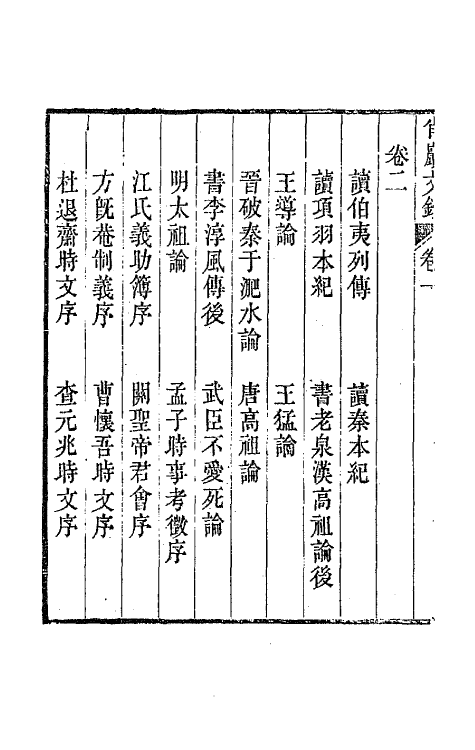 卷一
卷二
讀伯夷列傳　讀秦本紀
讀項羽本紀　書老泉漢高祖論後
王導論　王猛論
晉破秦于淝水論　唐高祖論
書李淳風傳後　武臣不愛死論
明太祖論　孟子時事考徵序
江氏義助簿序　關聖帝君會序
方旣菴制義序　曹懷吾時文序
杜退齋時文序　查元兆時文序